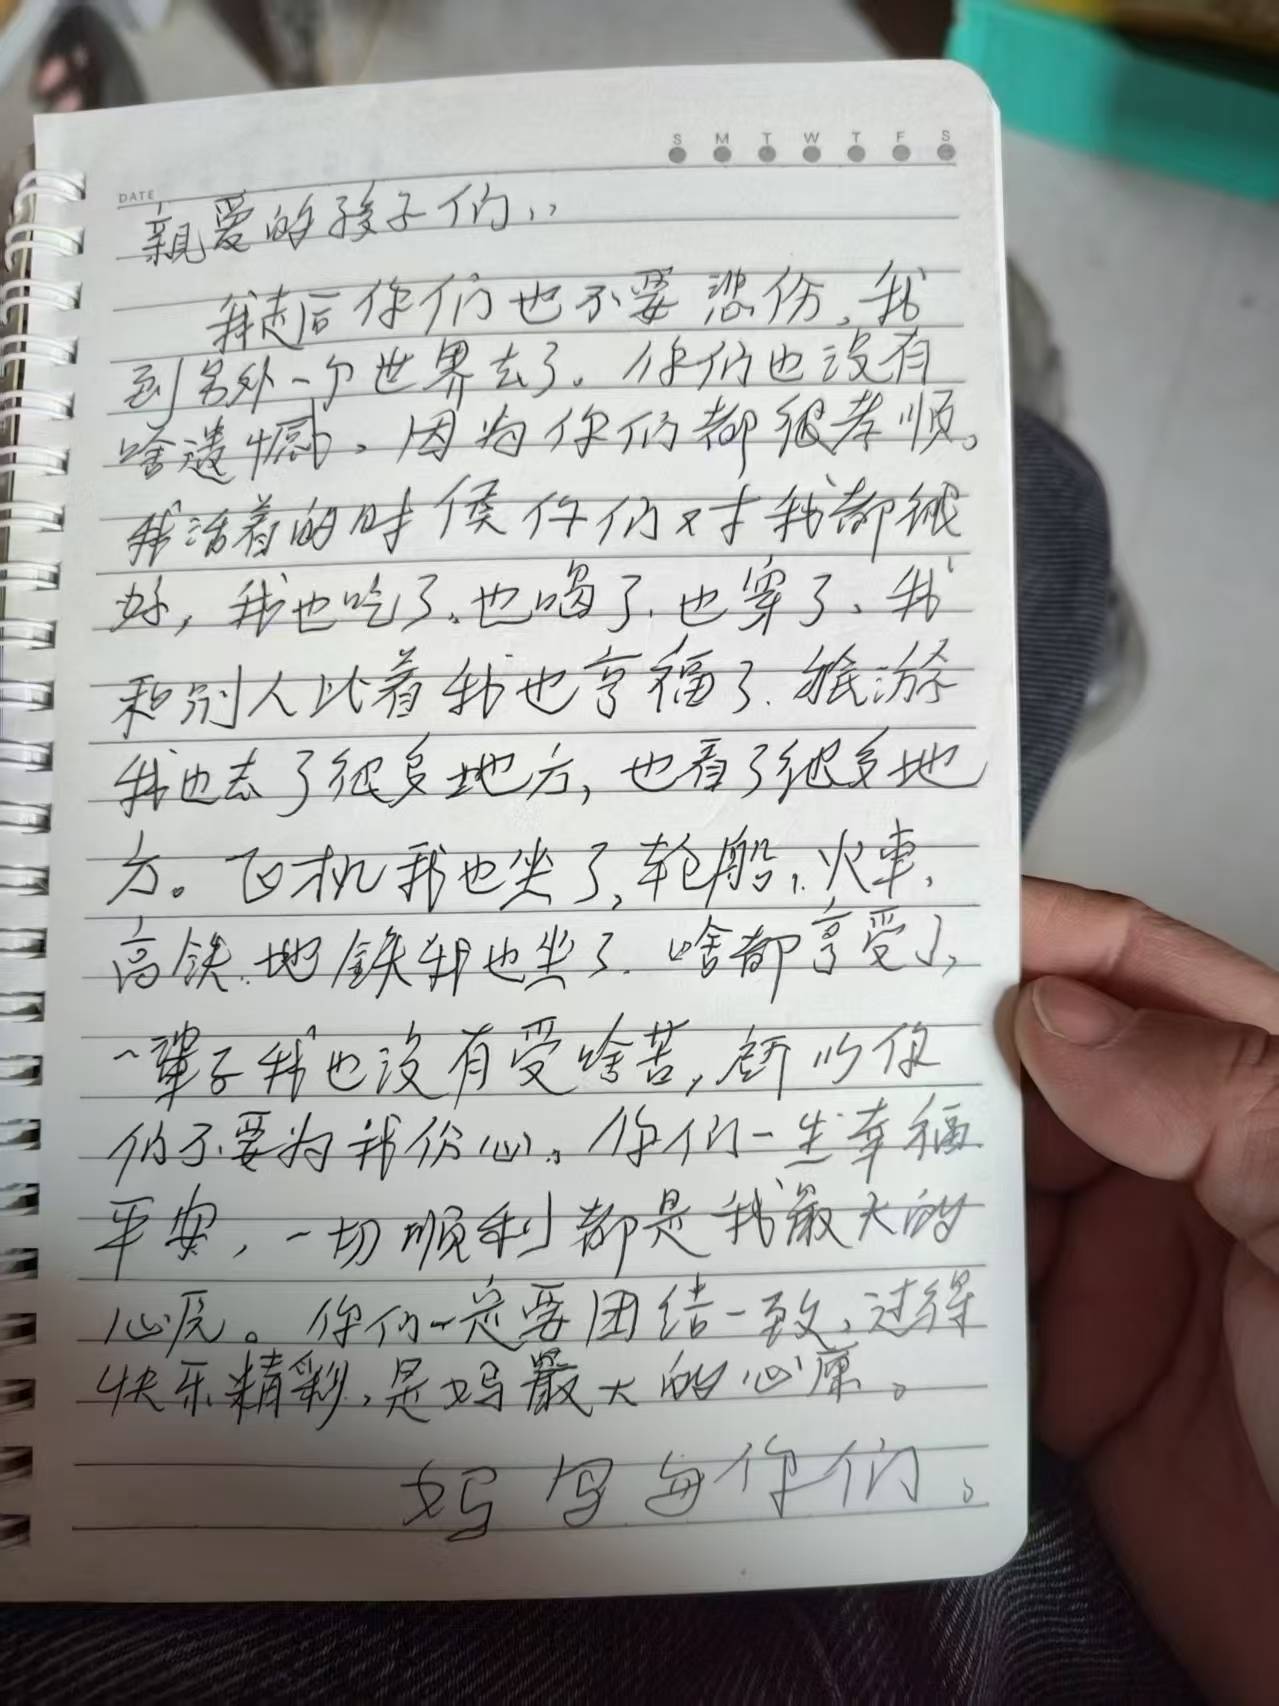 S M T W T F S
DATE
亲爱的孩子们,,
我走后你们也不要悲伤,我
到另外一个世界去了。你们也没有
啥遗憾、因为你们都很孝顺。
我活着的时候你们对我都很
好,我也吃了、也喝了、也穿了、我
和别人比着我也享福了、旅游
我也去了很多地方,也看了很多地
方。飞机我也坐了,轮船、火車、
高铁、地鉄我也坐了、啥都享受了,
一辈子我也没有受啥苦,所以你
们不要为我伤心。你们一生幸福
平安,一切顺利都是我最大的
心愿。你们一定要团结一致、过得
快乐精彩、是妈最大的心愿。
妈写与你们。